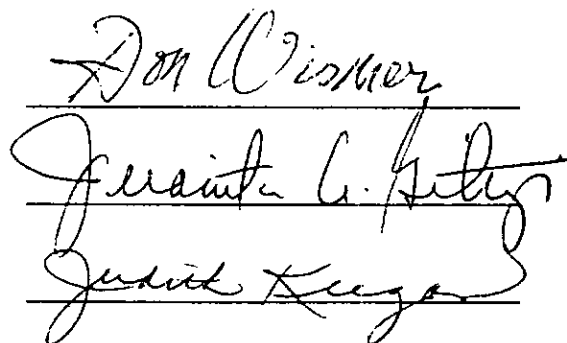 Don Wismer
Juanita A.
Judith Keegan